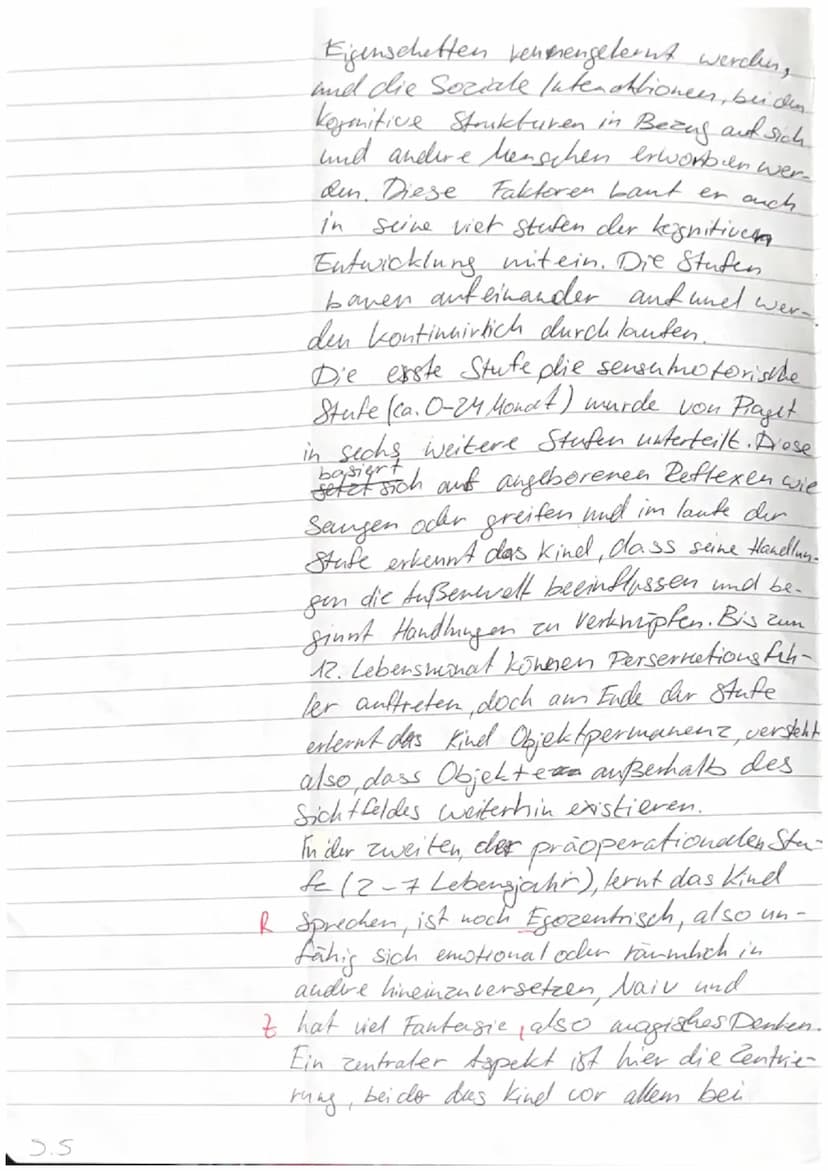 Eigenschaften kennengelernt werden,
und die Soziale Interaktionen, bei den
kognitive Strukturen in Bezug auf sich
und andere Menschen erworben wer-
den. Diese Faktoren baut er auch
in seine vier Stufen der kognitiven
Entwicklung mit ein. Die Stufen
bauen aufeinander auf und wer-
den kontinuirlich durchlaufen.
Die erste Stufe, die sensumotorische
Stufe (ca. 0-24 Monat) wurde von Piaget
in sechs weitere Stufen unterteilt. Diese
basiert
setzt sich auf angeborenen Reflexen wie
Saugen oder greifen und im laufe der
Stufe erkennt das Kind, dass seine Handlun-
gen die Außenwelt beeinflussen und be-
ginnt Handlungen zu verknüpfen. Bis zum
12. Lebensmonat können Perservationsfeh-
ler auftreten, doch am Ende der Stufe
erlernt das Kind Objektpermanenz, versteht
also, dass Objekte außerhalb des
Sichtfeldes weiterhin existieren.
In der zweiten, der präoperationalen Stu-
fe (2-7 Lebensjahr), lernt das Kind
R Sprechen, ist noch Egozentrisch, also un-
fähig sich emotional oder räumlich in
andere hineinzuversetzen, Naiv und
Z hat viel Fantasie, also magisches Denken.
Ein zentraler Aspekt ist hier die Zentrie-
rung, bei der das Kind vor allem bei
S.5